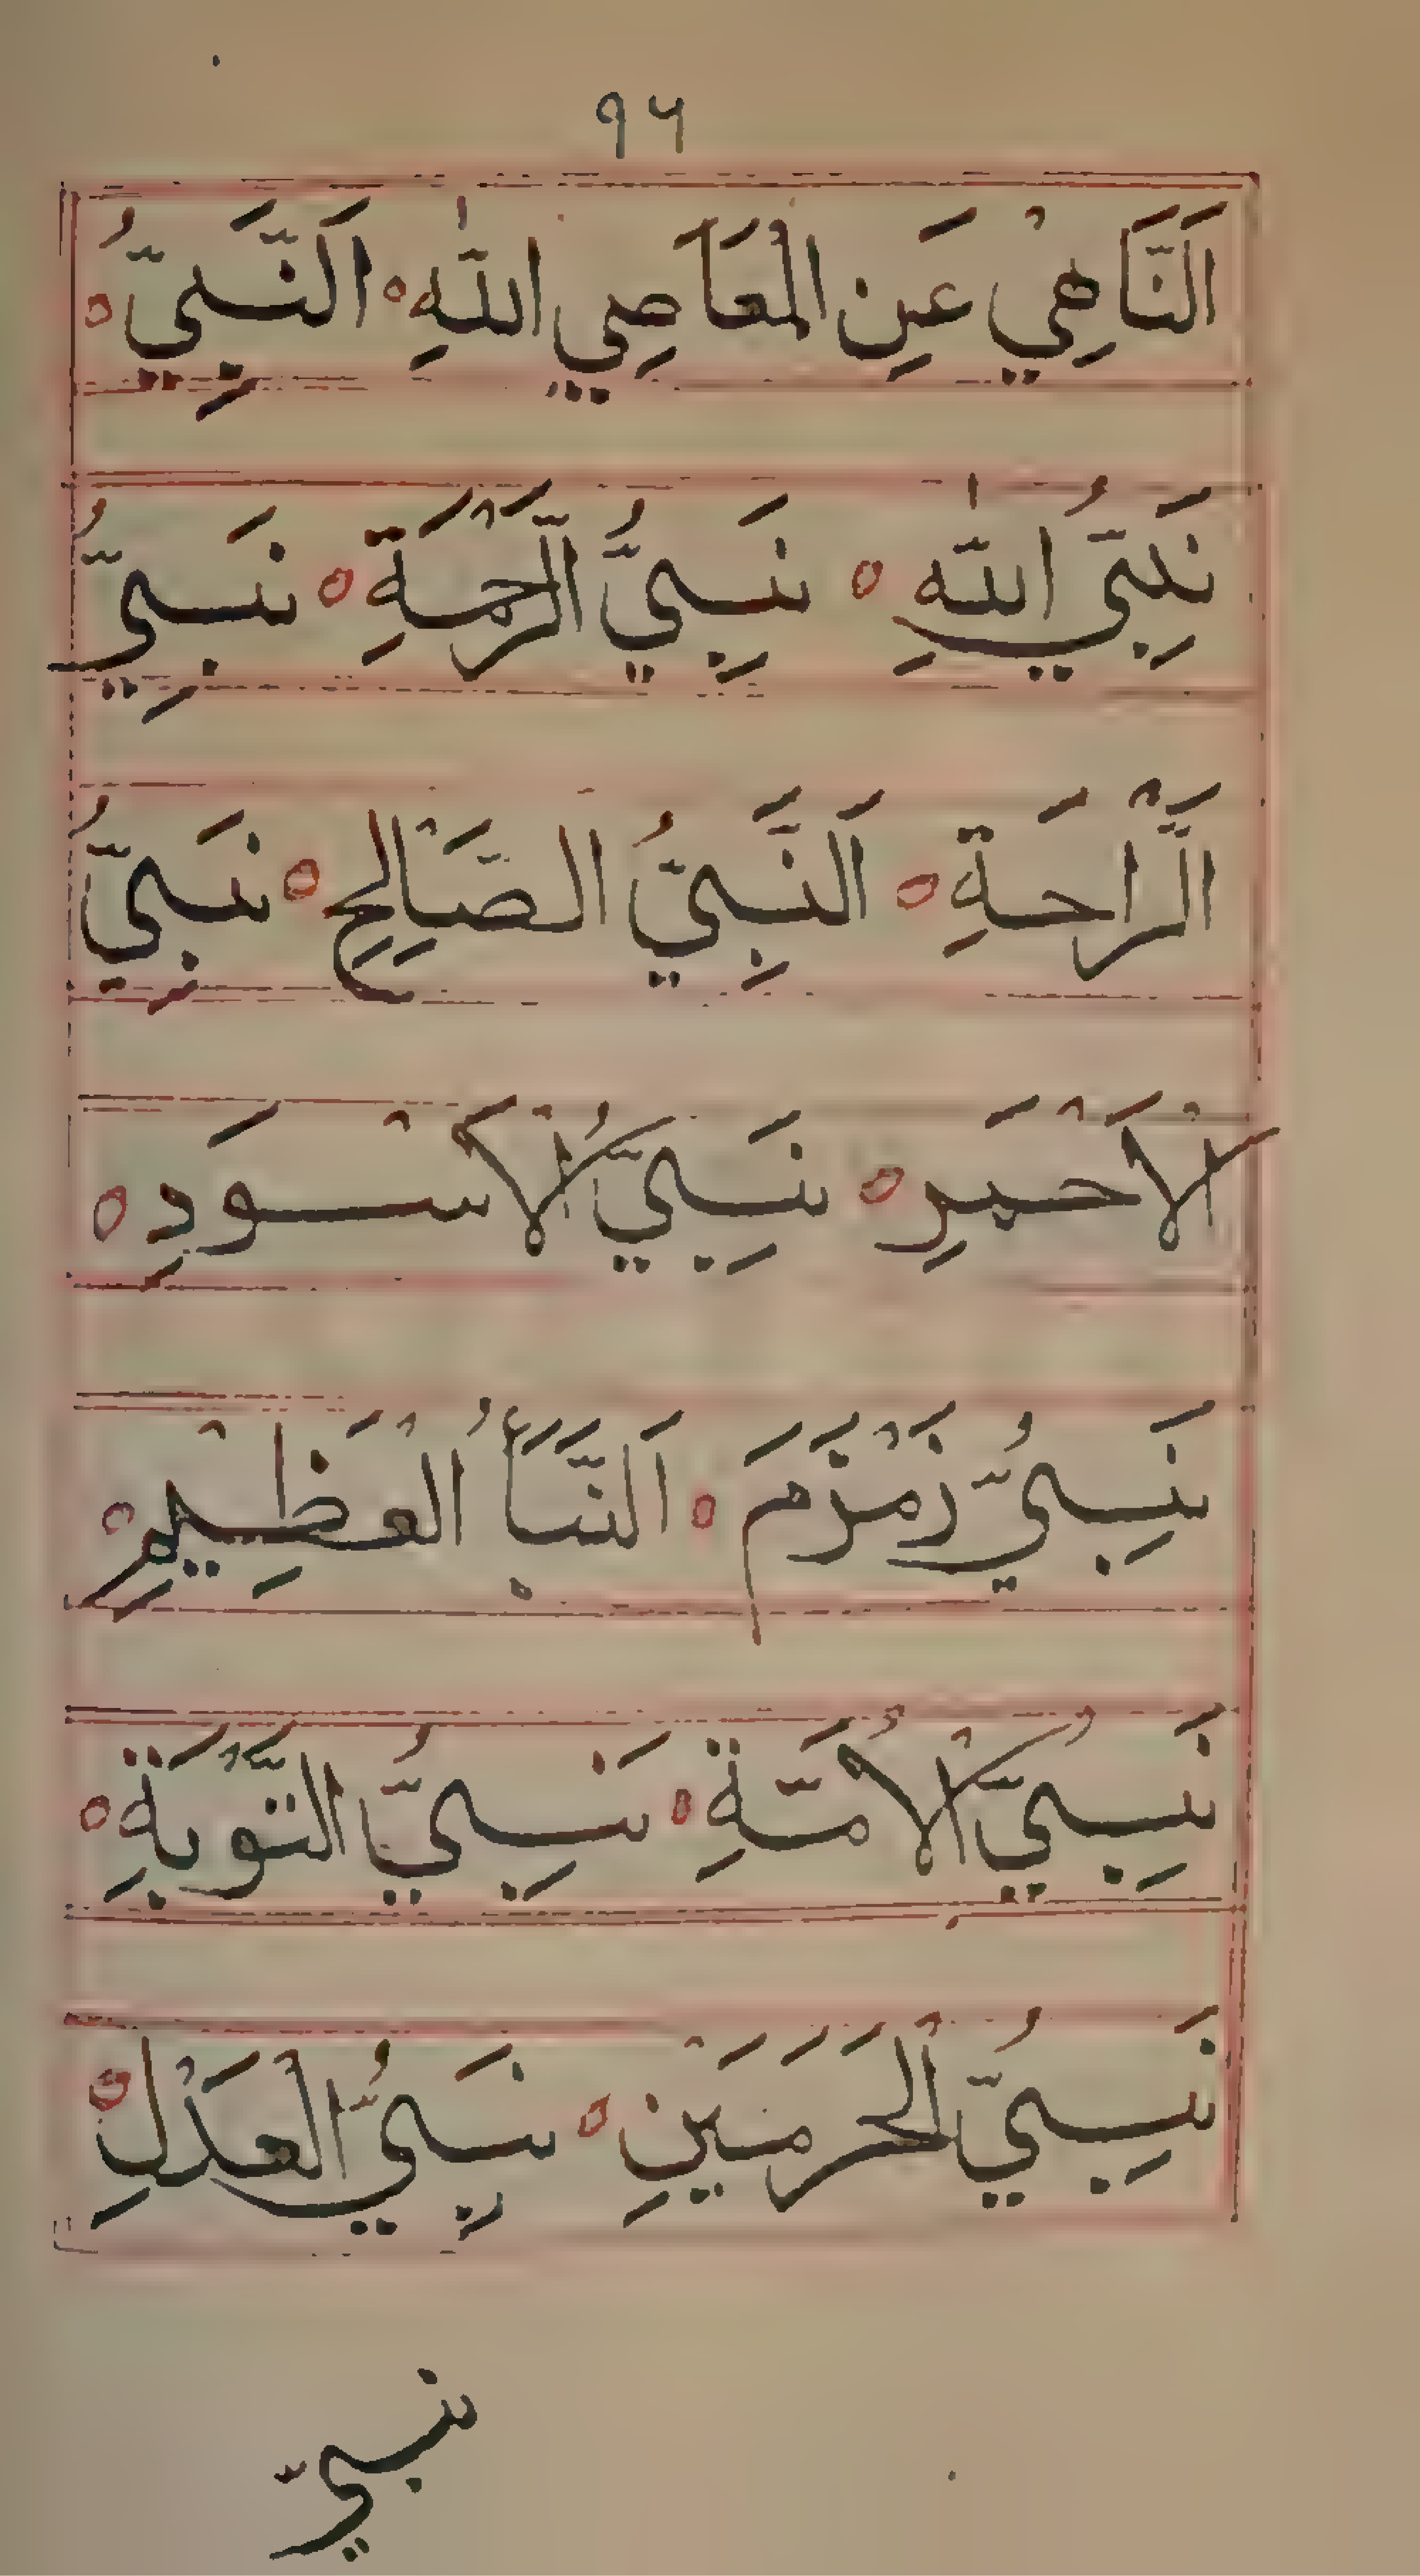 ٩٦
اَلنَّاهِيْ عَنِ الْمَعَاصِي اللّٰهِ ه اَلنَّبِيُّ ه
نَبِيُّ اللّٰهِ ه نَبِيُّ الرَّحْمَةِ ه نَبِيُّ
الرَّاحَةِ ه اَلنَّبِيُّ الصَّالِحِ ه نَبِيُّ
الْاَحْمَرِ ه نَبِيُّ الْاَسْوَدِ ه
نَبِيُّ زَمْزَمَ ه اَلنَّبَأُ الْعَظِيْمِ ه
نَبِيُّ الْاُمَّةِ ه نَبِيُّ التَّوْبَةِ ه
نَبِيُّ الْحَرَمَيْنِ ه نَبِيُّ الْعَدْلِ ه
نبيّ